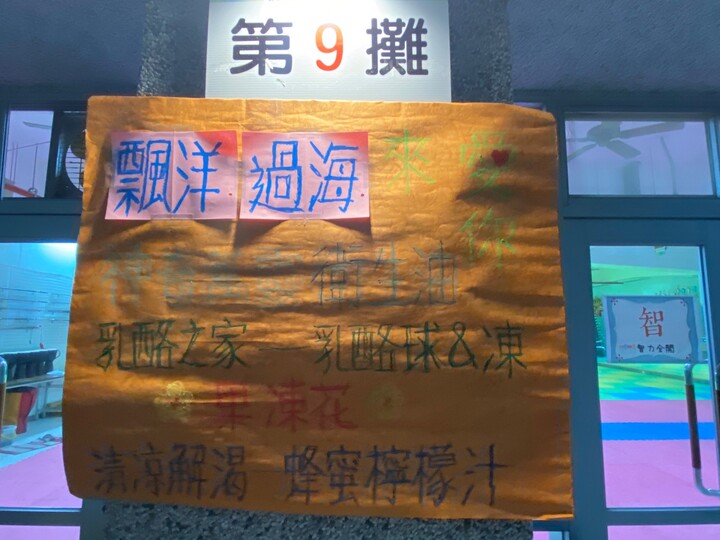 第9攤
飄洋過海來愛你
衛生油
乳酪之家 — 乳酪球&凍
果凍花
清涼解渴 蜂蜜檸檬汁
智
智力全開